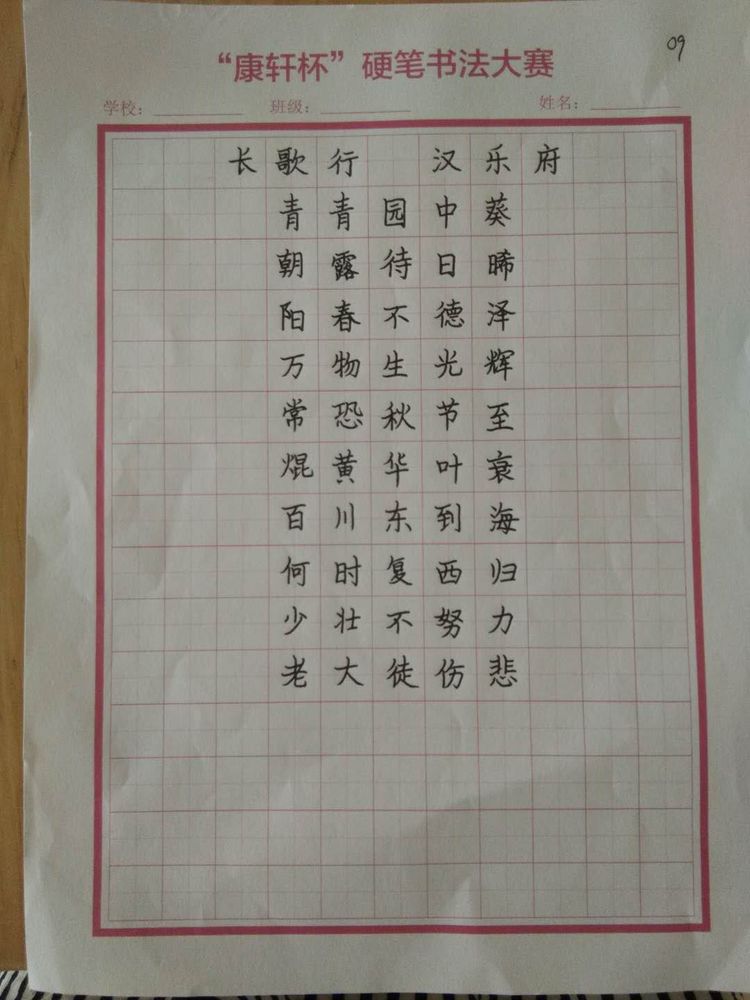 09
“康轩杯”硬笔书法大赛
学校： 班级： 姓名：
长歌行 汉乐府
青青园中葵
朝露待日晞
阳春不德泽
万物生光辉
常恐秋节至
焜黄华叶衰
百川东到海
何时复西归
少壮不努力
老大徒伤悲